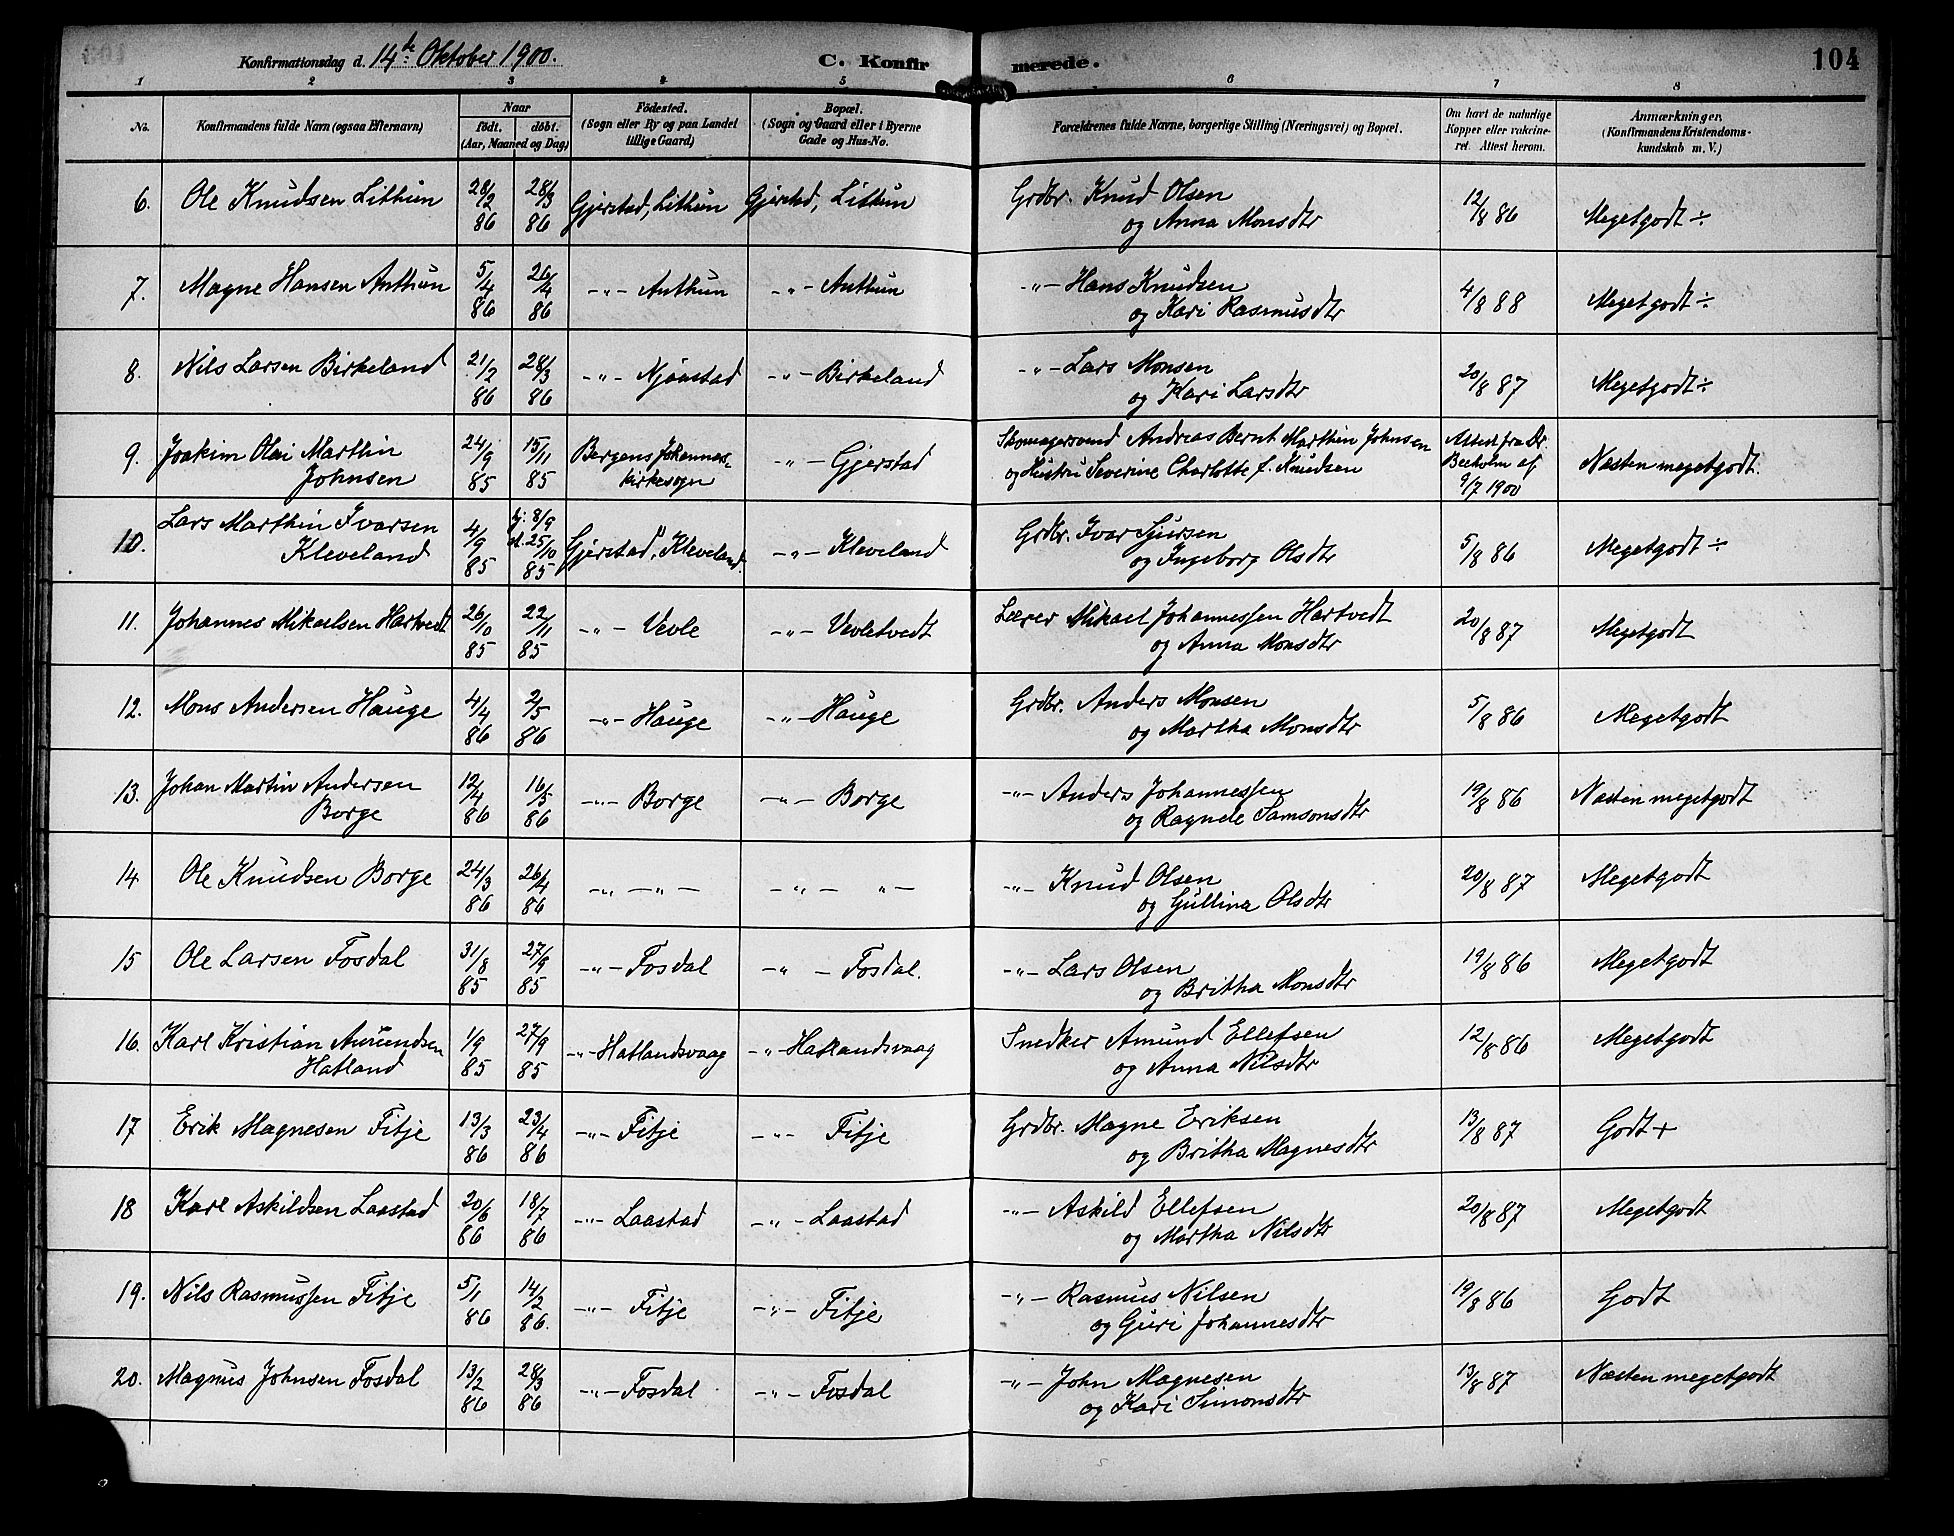 Konfirmationsdag d. 14de Oktober 1900. C. Konfirmerede. 104
1 2 3 4 5 6 7 8
No. Konfirmandens fulde Navn (ogsaa Efternavn) Naar født. døbt. (Aar, Maaned og Dag) Fødested. (Sogn eller By og paa Landet tillige Gaard) Bopæl. (Sogn og Gaard eller i Byerne Gade og Hus-No. Forældrenes fulde Navne, borgerlige Stilling (Næringsvei) og Bopæl. Om havt de naturlige Kopper eller vakcineret. Attest herom. Anmærkninger. (Konfirmandens Kristendomskundskab m. V.)
6. Ole Knudsen Lithun 28/2 86 28/3 86 Gjerstad, Lithun Gjerstad, Lithun Grdbr. Knud Olsen og Anna Monsdtr 12/8 86 Megetgodt ÷
7. Magne Hansen Anthun 5/4 86 26/4 86 -"- Anthun -"- Anthun -"- Hans Knudsen og Kari Rasmusdtr 4/8 88 Megetgodt ÷
8. Nils Larsen Birkeland 21/2 86 28/3 86 -"- Njaastad -"- Birkeland -"- Lars Monsen og Kari Larsdtr 20/8 87 Megetgodt ÷
9. Joakim Olai Marthin Johnsen 24/9 85 15/11 85 Bergens Johanneskirkesogn -"- Gjerstad Skomagersvend Andreas Bernt Marthin Johnsen og Hustru Severine Charlotte f. Knudsen Attest fra Dr. af 9/7 1900 Næsten megetgodt.
10. Lars Marthin Ivarsen Kleveland 4/9 85 hj. 8/9 st. 25/10 85 Gjerstad, Kleveland. -"- Kleveland Grdbr. Ivar Sjursen og Ingeborg Olsdtr 5/8 86 Megetgodt ÷
11. Johannes Mikaelsen Hartvedt 26/10 85 22/11 85 -"- Vevle -"- Vevletvedt Lærer Mikael Johannessen Hartvedt og Anna Monsdtr 20/8 87 Megetgodt
12. Mons Andersen Hauge 4/4 86 2/5 86 -"- Hauge -"- Hauge Grdbr. Anders Monsen og Martha Monsdtr 5/8 86 Megetgodt
13. Johan Martin Andersen Borge 12/4 86 16/5 86 -"- Borge -"- Borge -"- Anders Johannessen og Ragnele Samsonsdtr 19/8 86 Næsten megetgodt
14 Ole Knudsen Borge 24/3 86 26/4 86 -"- -"- -"- "- -"- Knud Olsen og Gullina Olsdtr 20/8 87 Megetgodt
15 Ole Larsen Fosdal 31/8 85 27/9 85 -"- Fosdal -"- Fosdal. -"- Lars Olsen og Britha Monsdtr 19/8 86 Megetgodt
16. Karl Kristian Amundsen Hatland 1/9 85 27/9 85 -"- Hatlandsvaag -"- Hatlandsvaag Snedker Amund Ellefsen og Anna Nilsdtr 12/8 86 Megetgodt
17 Erik Magnesen Fitje 13/3 86 23/4 86 -"- Fitje -"- Fitje Grdbr. Magne Eriksen og Britha Magnesdtr 13/8 87 Godt +
18 Karl Askildsen Laastad 20/6 86 18/7 86 -"- Laastad -"- Laastad -"- Askild Ellefsen og Martha Nilsdtr 20/8 87 Megetgodt
19. Nils Rasmussen Fitje 5/1 86 14/2 86. -"- Fitje -"- Fitje -"- Rasmus Nilsen og Guri Johannesdtr 19/8 86 Godt
20. Magnus Johnsen Fosdal 13/2 86 28/3 86 -"- Fosdal -"- Fosdal -"- John Magnesen og Kari Simonsdtr 13/8 87 Næsten megetgodt